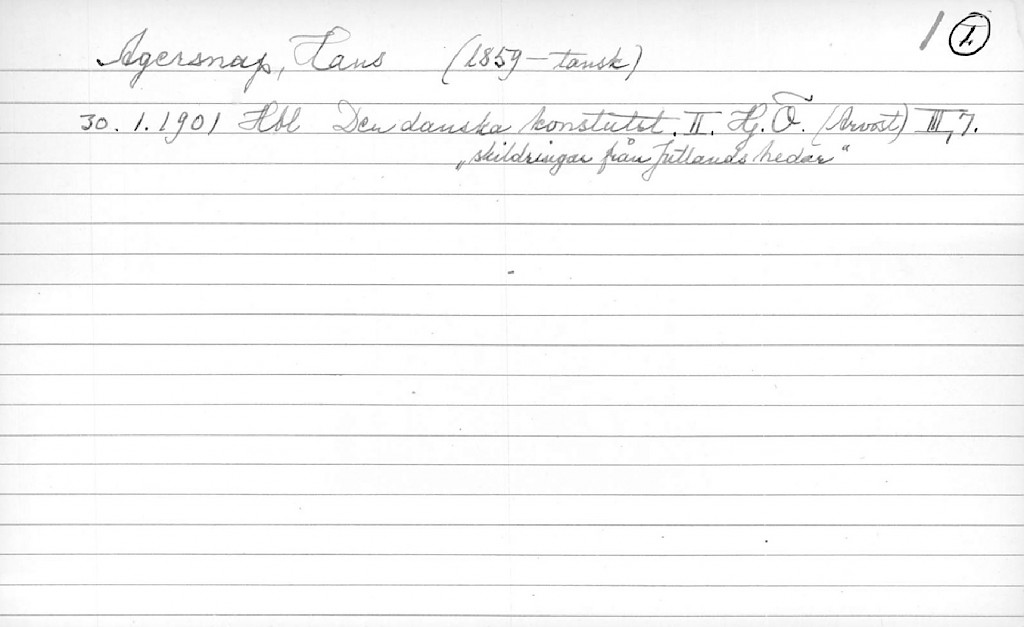 1 I.
Agersnap, Hans (1859 – tansk)
30. 1. 1901 Hbl Den danska konstutst. II. Hj. Ö. (Arvost) III, 7.
„skildringar från Jutlands hedar“